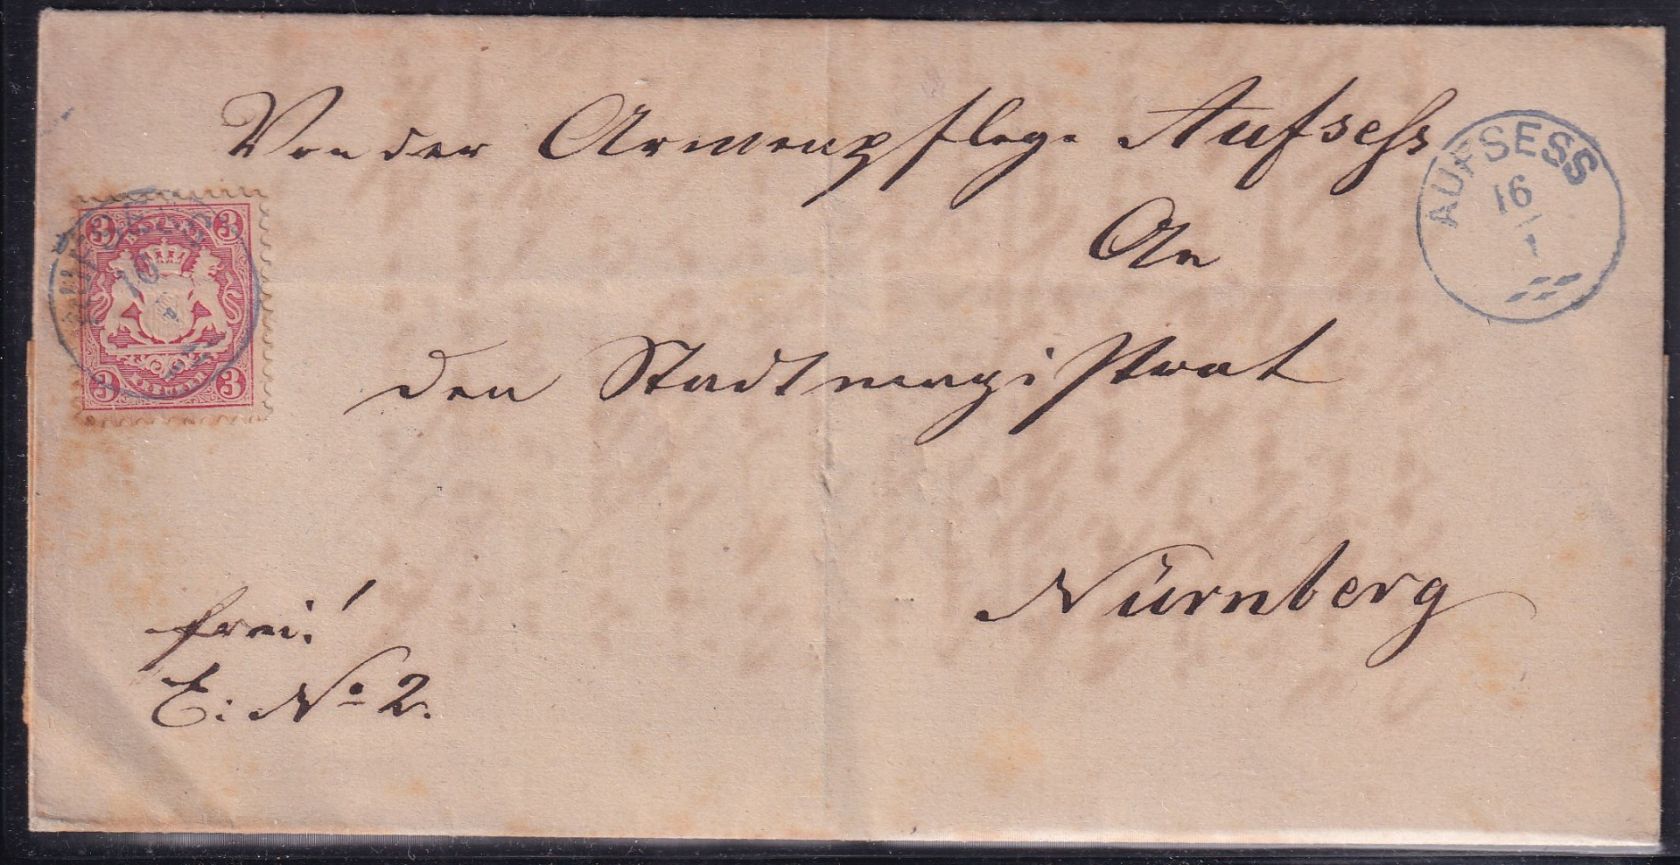 Von der Armenpflege Aufsess
An
den Stadtmagistrat
Nürnberg
frei!
E: No 2.
AUFSESS
16
1
3 3
3 3
AUFSESS
16
1